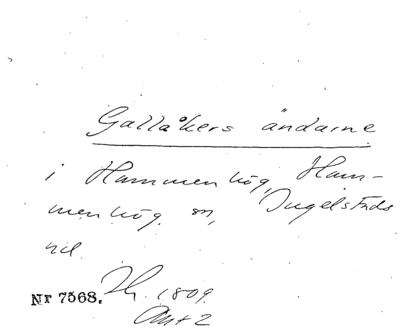 Gallåkers ändarne
i Hammenhög, Ham-
menhög sn, Ingelstads
hd.
Nr 7568. Ih. 1809.
Akt 2